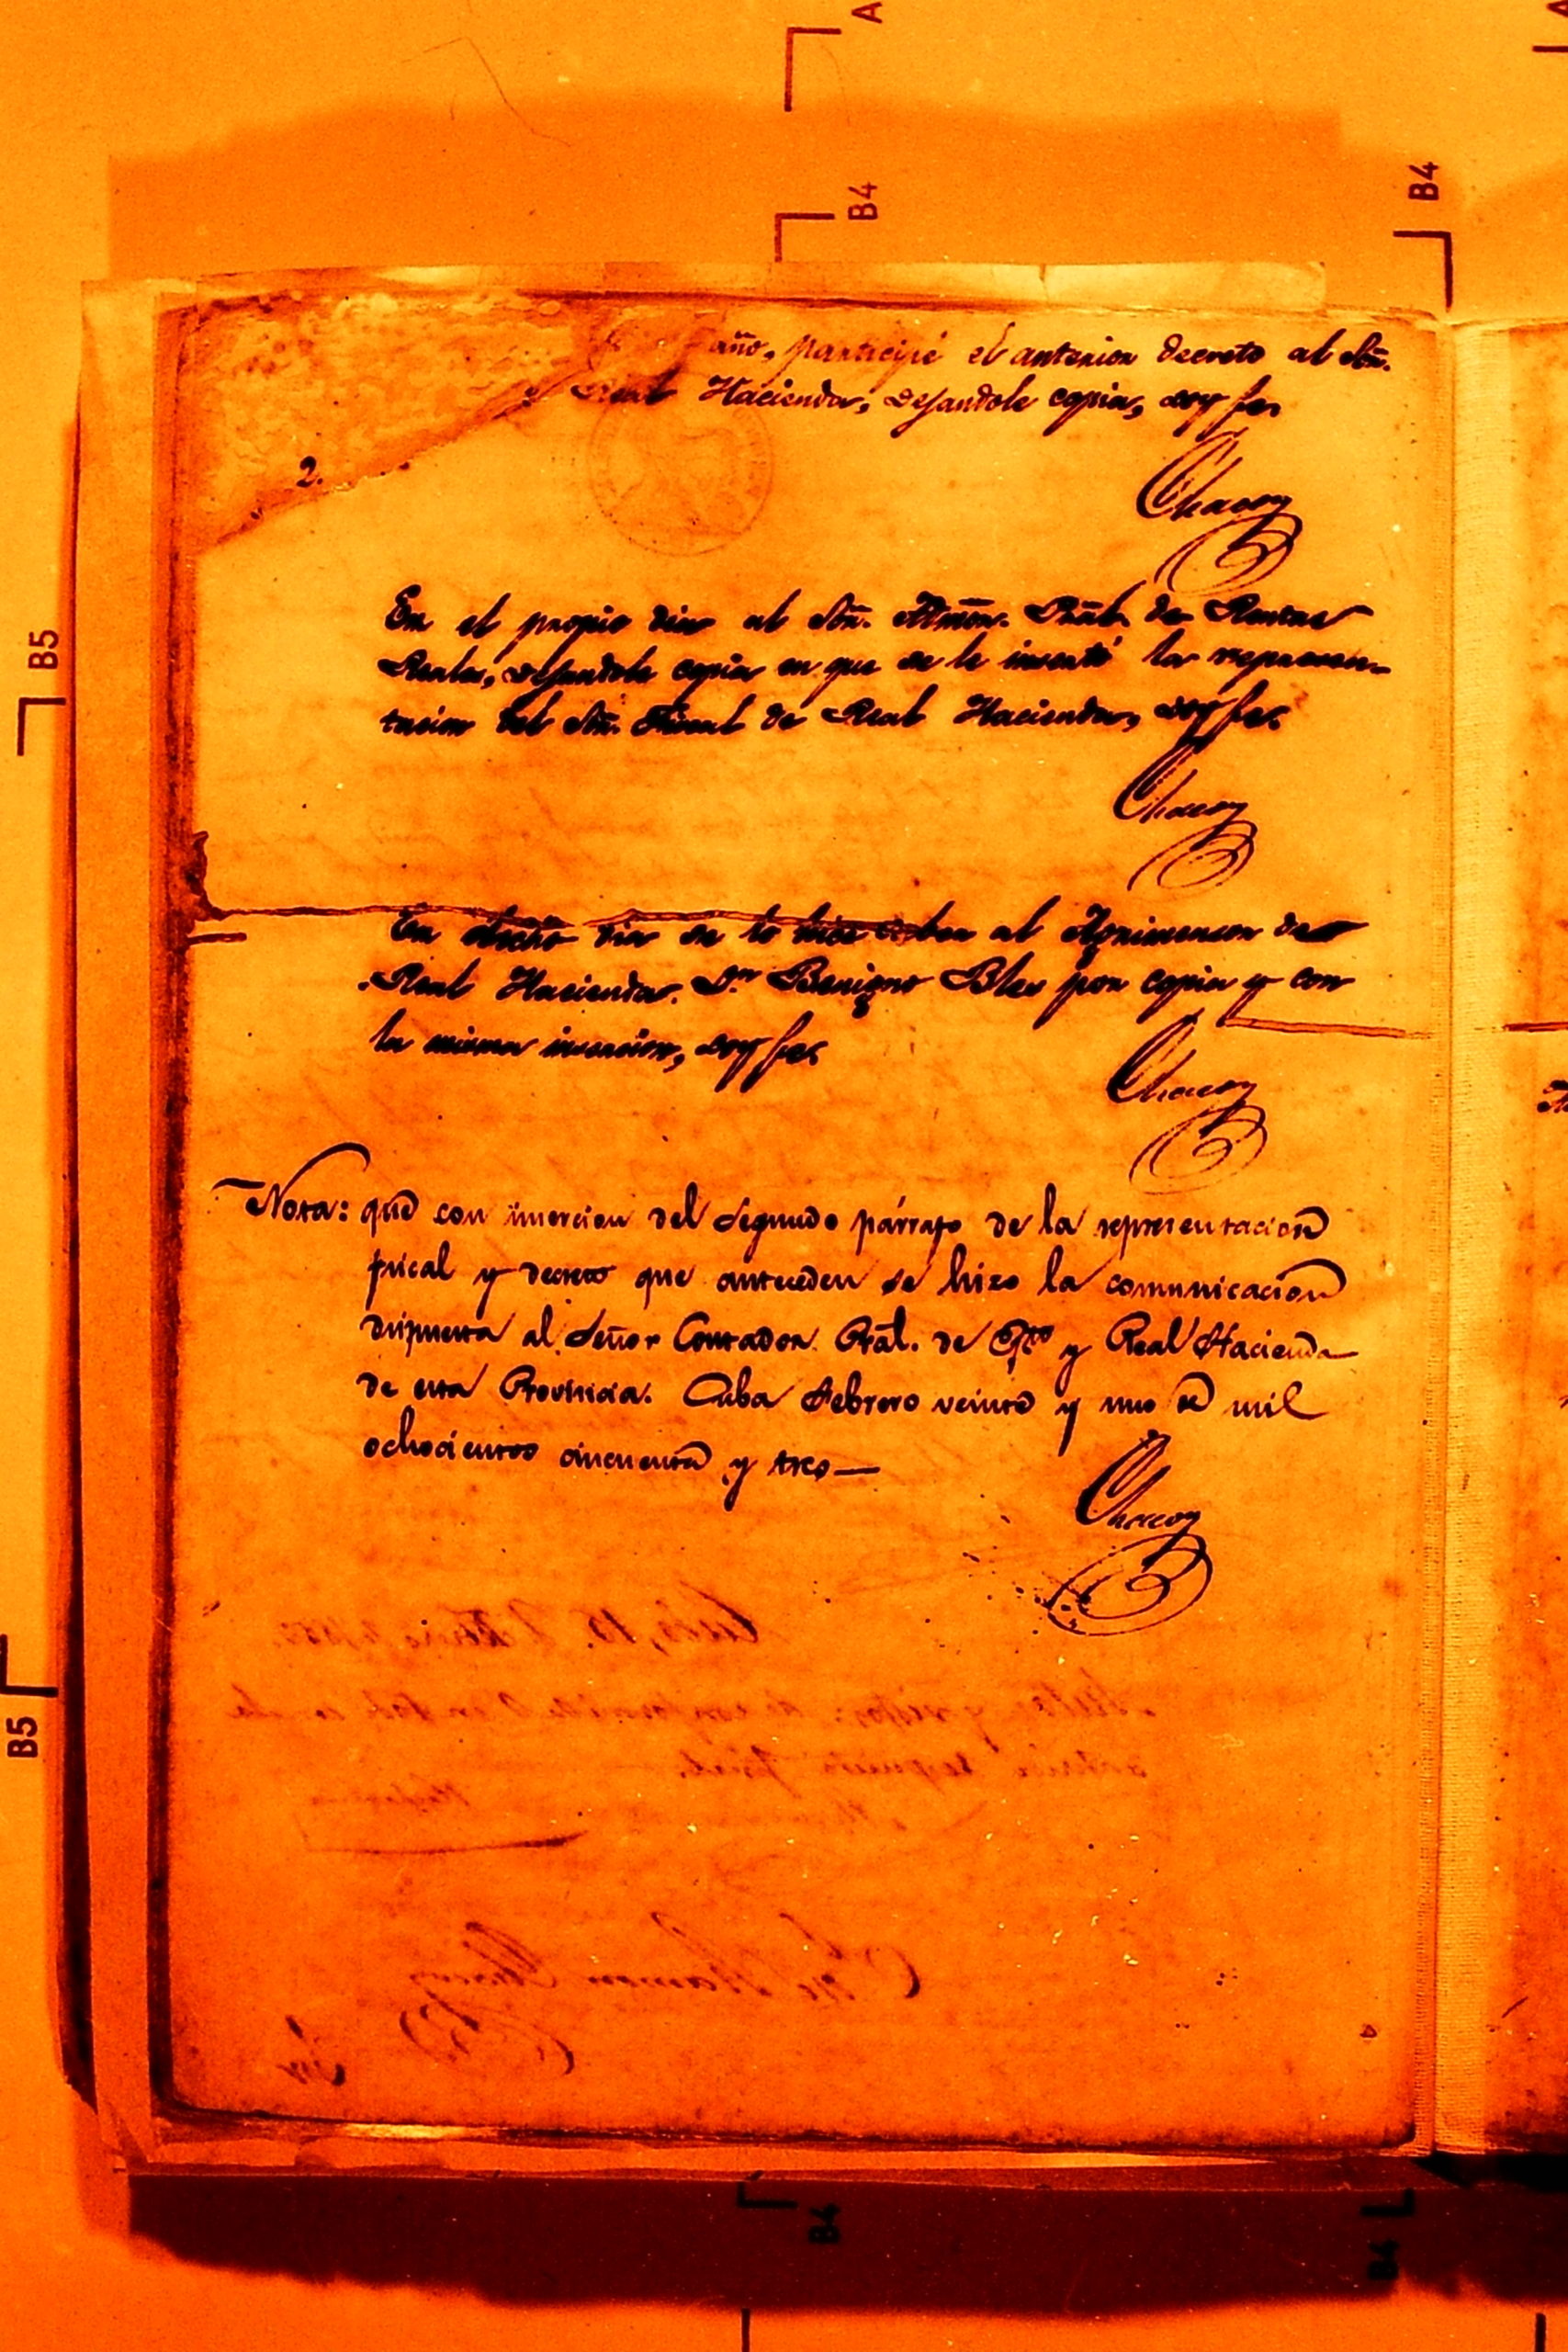 A
B4
B4
año, participé el anterior decreto al Sōr.
Real Hacienda, dejandole copia, doy fe.
2.
Chacon
En el propio dia al Sōr. Admōr. Prāl. de Rentas
Reales, dejandole copia en que se le insertó la represen-
tacion del Sōr. Fiscal de Real Hacienda, doy fe.
Chacon
En dicho dia se lo hice saber al Agrimensor de
Real Hacienda. Dn. Benigno Blez por copia y con
la misma insercion, doy fe.
Chacon
Nota: que con insercion del segundo párrafo de la representacion
fiscal y decreto que anteceden se hizo la comunicacion
dispuesta al Señor Contador Grāl. de y Real Hacienda
de esta Provincia. Cuba Febrero veinte y uno de mil
ochocientos cincuenta y tres—
Chacon
B5
B5
B4
B4